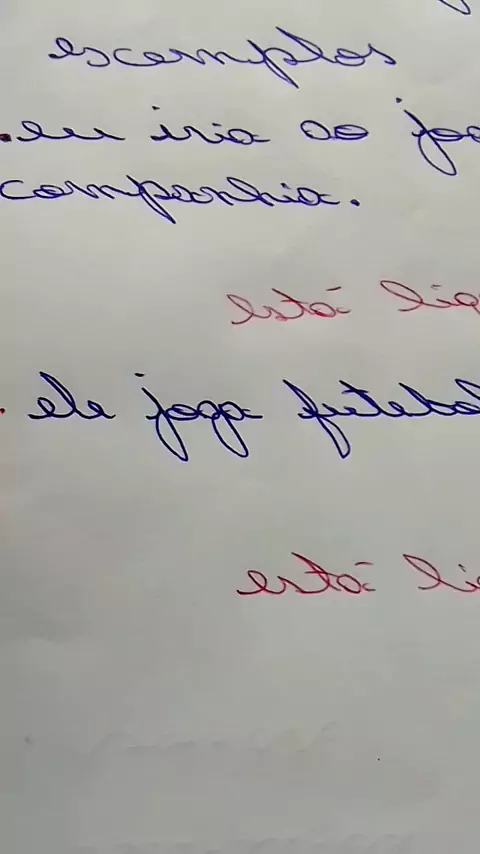 excemplos
.eu iria ao jog
companhia.
está lig
. ele joga futebol
está lig